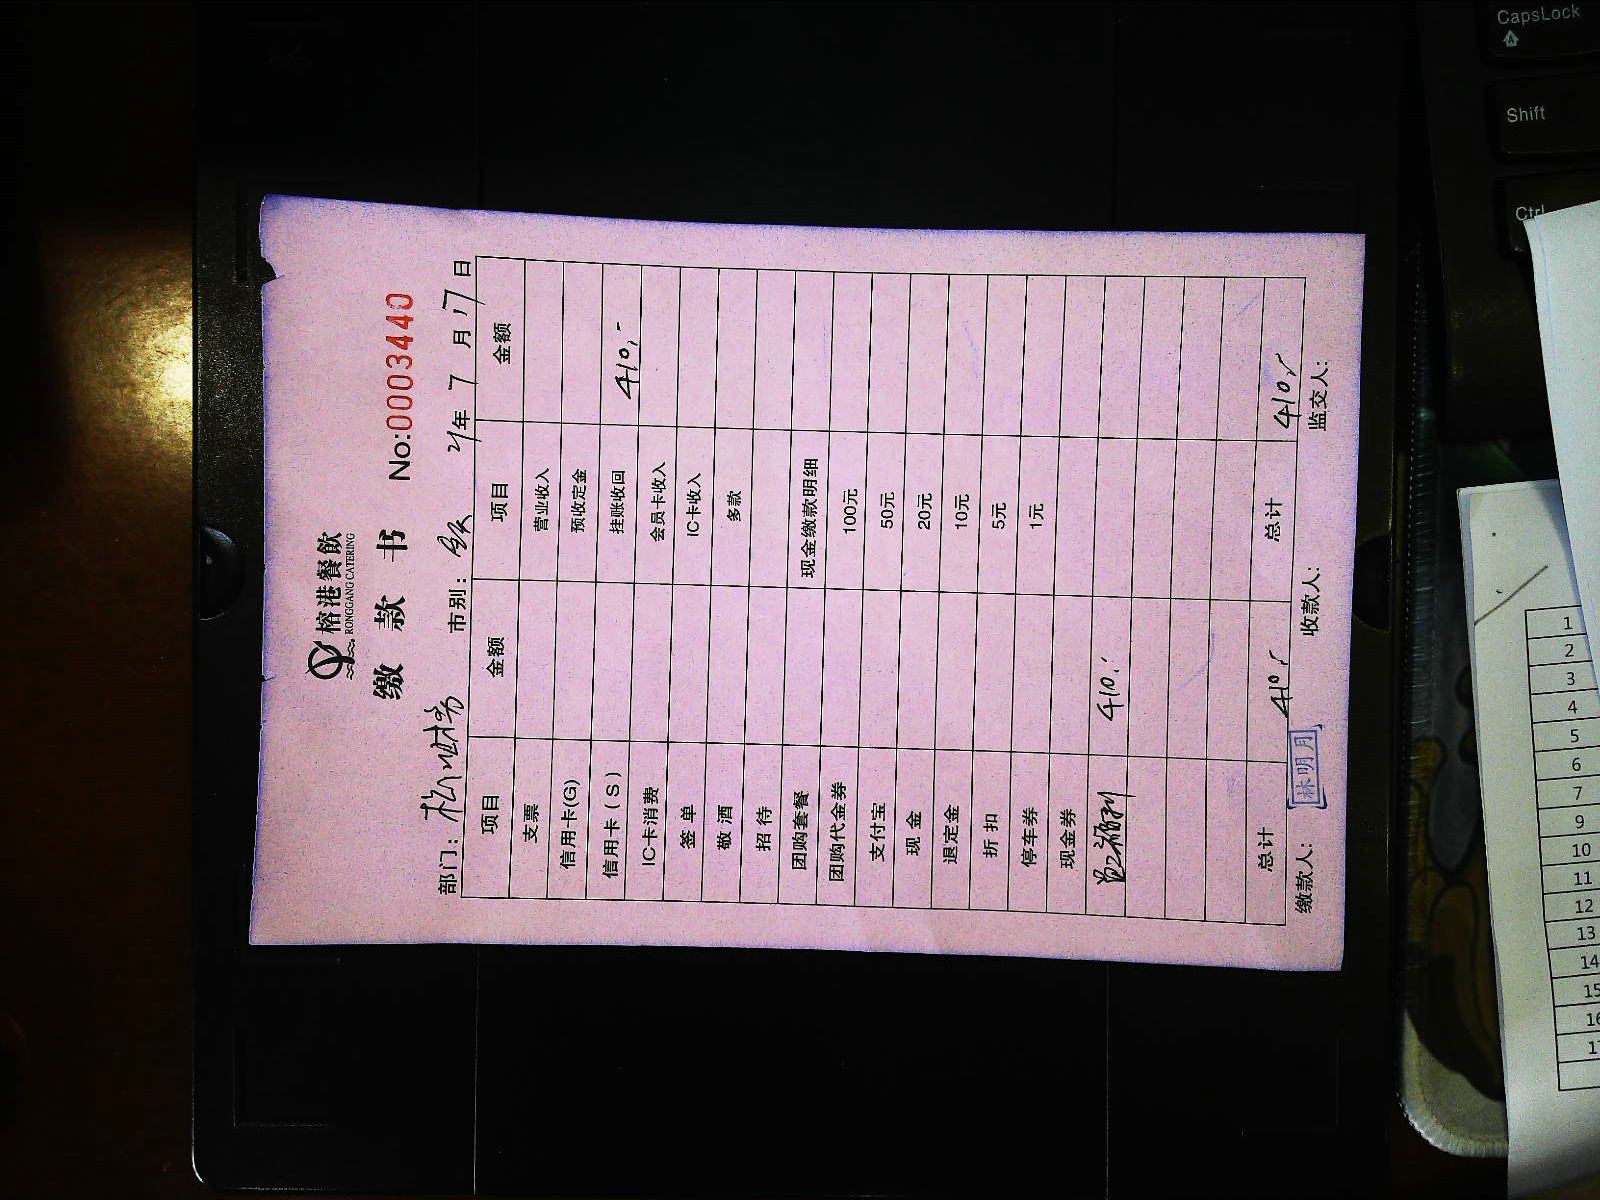 榕港餐飲
RONGGANG CATERING
缴 款 书
No:0003440
部门: 市别: 21年 7 月 17 日
项目 金额 项目 金额
支票 营业收入
信用卡(G) 预收定金
信用卡(S) 挂账收回 410.-
IC卡消费 会员卡收入
签单 IC卡收入
敬酒 多款
招待
团购套餐 现金缴款明细
团购代金券 100元
支付宝 50元
现金 20元
退定金 10元
折扣 5元
停车券 1元
现金券
410.-
总计 410.- 总计 410.-
缴款人: 林明月 收款人: 监交人:
CapsLock
Shift
Ctrl
1
2
3
4
5
6
7
9
10
11
12
13
14
15
16